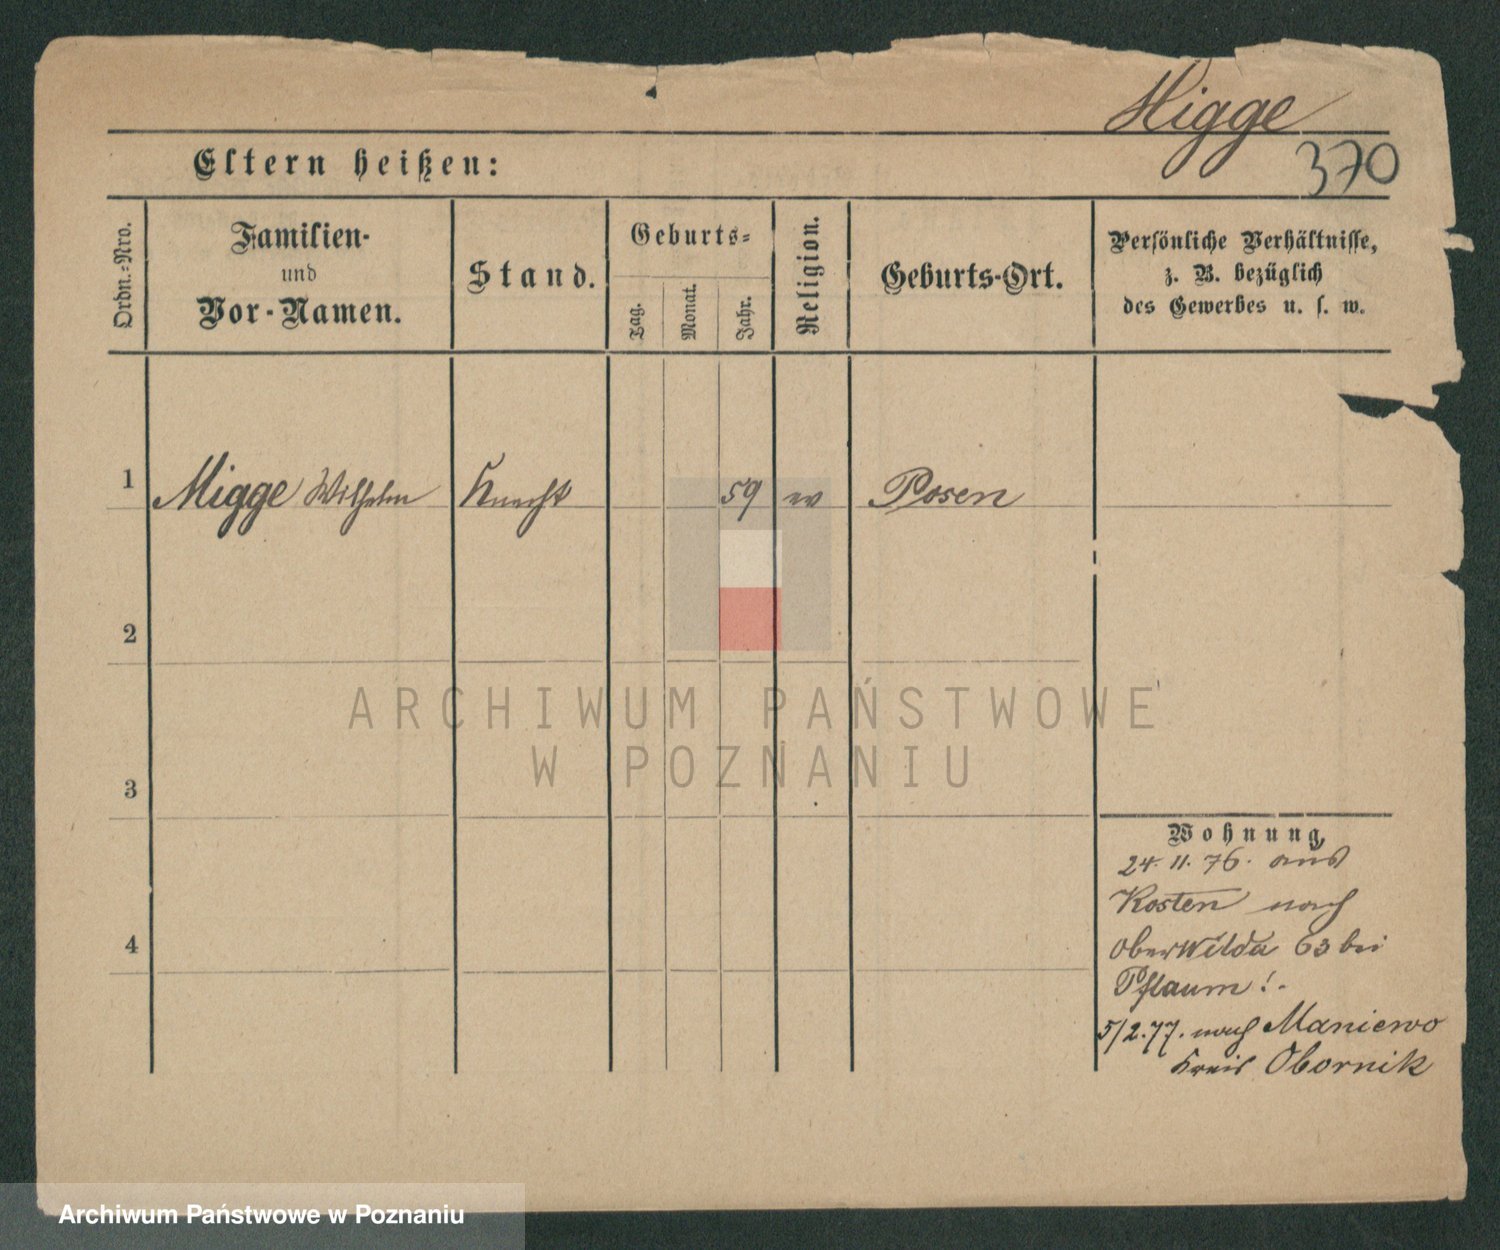 Migge
370
Eltern heißen:
Ordn.-Nro.
Familien-
und
Vor-Namen.
Stand.
Geburts-
Tag.
Monat.
Jahr.
Religion.
Geburts-Ort.
Persönliche Verhältnisse,
z. B. bezüglich
des Gewerbes u. s. w.
1 Migge Wilhelm Knecht 59 Posen
2
3
4
ARCHIWUM PAŃSTWOWE
W POZNANIU
Wohnung,
24. 11. 76. aus
Kosten nach
Oberwilda 63 bei
Pflaum!.
5/2.77. nach Maniewo
Kreis Obornik
Archiwum Państwowe w Poznaniu